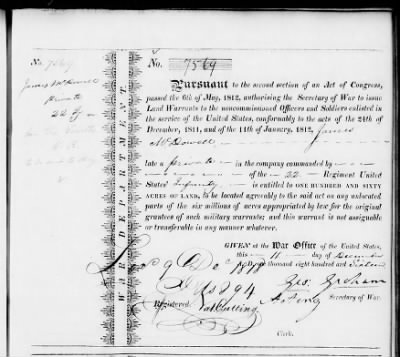 No. 7569
James McDowell
Private
22 Inf
WAR DEPARTMENT.
No. 7569
Pursuant to the second section of an Act of Congress,
passed the 6th of May, 1812, authorising the Secretary of War to issue
Land Warrants to the noncommissioned Officers and Soldiers enlisted in
the service of the United States, conformably to the acts of the 24th of
December, 1811, and of the 11th of January, 1812, James
McDowell
late a private in the company commanded by
of the 22 Regiment United
States' Infantry is entitled to ONE HUNDRED AND SIXTY
ACRES OF LAND, to be located agreeably to the said act on any unlocated
parts of the six millions of acres appropriated by law for the original
grantees of such military warrants; and this warrant is not assignable
or transferable in any manner whatever.
GIVEN at the War Office of the United States,
this 11 day of December
one thousand eight hundred and sixteen
Geo: Graham
Secretary of War.
Registered.
Nat Cutting
Clerk.